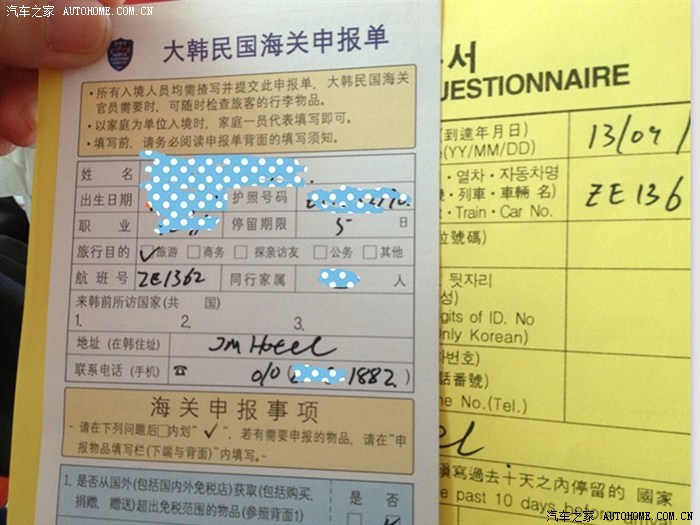 汽车之家 AUTOHOME.COM.CN
大韩民国海关申报单
•所有入境人员均需揸写并提交此申报单，大韩民国海关
官员需要时，可随时检查旅客的行李物品。
•以家庭为单位入境时，家庭一员代表填写即可。
•填写前，请务必阅读申报单背面的填写须知。
姓 名
出生日期 护照号码
职 业 停留期限 5 日
旅行目的 ✓旅游 □商务 □探亲访友 □公务 □其他
航班号 ZE1362 同行家属 人
来韩前所访国家(共 国)
1. 2. 3.
地址 (在韩住址) JM Hotel
联系电话 (手机) ☎ 010( 1882 )
海关申报事项
- 请在下列问题后□内划“✓”，若有需要申报的物品，请在“申
报物品填写栏(下端与背面)”内填写。-
1. 是否从国外(包括国内外免税店)获取(包括购买，
捐赠，赠送)超出免税范围的物品(参照背面1)
是 否
서
UESTIONNAIRE
(到達年月日)
(YY/MM/DD)
13/04/
·열차·자동차명
·列車·車輛 名)
·Train·Car No.
ZE136
位號碼)
뒷자리
성)
igits of ID. No
Only Korean)
화번호)
話番號)
ne No.(Tel.)
el
填寫過去十天之內停留的 國家
e past 10 days before
汽车之家 AUTOHOME.COM.CN